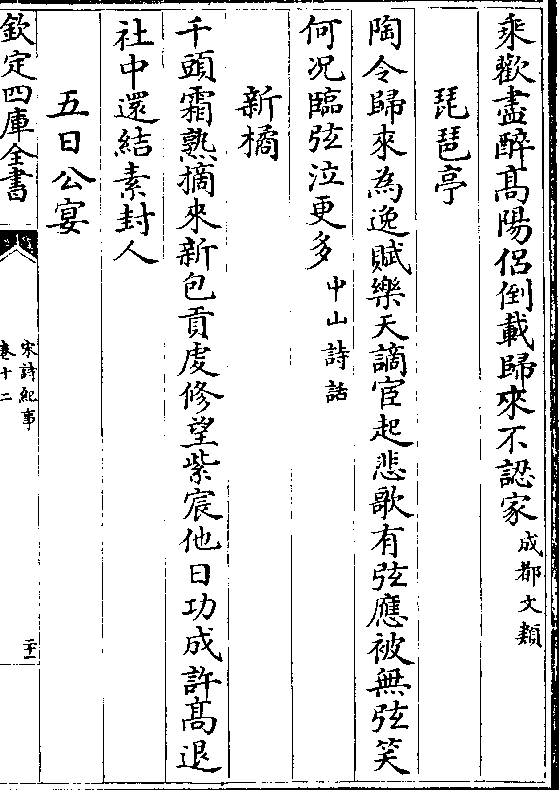 乘歡盡醉髙陽侣倒載歸來不認家成都文類
琵琶亭
陶令歸來為逸賦樂天謫宦起悲歌有弦應被無弦笑
何况臨弦泣更多中山詩話
新橘
千頭霜熟摘來新包貢䖍修望紫宸他日功成許髙退
社中還結素封人
五日公宴
欽定四庫全書
宋詩紀事
卷十二
二十一